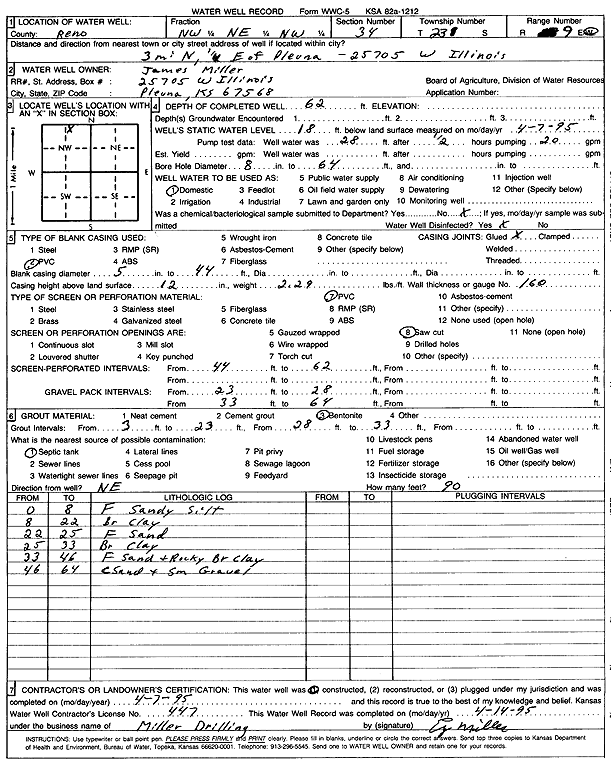 WATER WELL RECORD Form WWC-5 KSA 82a-1212
1 LOCATION OF WATER WELL: Fraction Section Number Township Number Range Number
County: Reno NW ¼ NE ¼ NW ¼ 34 T 23 S R 9 E/W
Distance and direction from nearest town or city street address of well if located within city?
3 mi N, ¼ E of Plevna - 25705 W Illinois
2 WATER WELL OWNER: James Miller
RR#, St. Address, Box # : 25705 W Illinois Board of Agriculture, Division of Water Resources
City, State, ZIP Code : Plevna, KS 67568 Application Number:
3 LOCATE WELL'S LOCATION WITH AN "X" IN SECTION BOX:
N
X
NW NE
W E
SW SE
S
1 Mile
4 DEPTH OF COMPLETED WELL 62 ft. ELEVATION:
Depth(s) Groundwater Encountered 1. ft. 2. ft. 3. ft.
WELL'S STATIC WATER LEVEL 18 ft. below land surface measured on mo/day/yr 4-7-95
Pump test data: Well water was 28 ft. after 1/2 hours pumping 20 gpm
Est. Yield gpm Well water was ft. after hours pumping gpm
Bore Hole Diameter 8 in. to 64 ft., and in. to ft.
WELL WATER TO BE USED AS: 5 Public water supply 8 Air conditioning 11 Injection well
1 Domestic 3 Feedlot 6 Oil field water supply 9 Dewatering 12 Other (Specify below)
2 Irrigation 4 Industrial 7 Lawn and garden only 10 Monitoring well
Was a chemical/bacteriological sample submitted to Department? Yes No X; If yes, mo/day/yr sample was submitted
Water Well Disinfected? Yes X No
5 TYPE OF BLANK CASING USED: 5 Wrought iron 8 Concrete tile CASING JOINTS: Glued X Clamped
1 Steel 3 RMP (SR) 6 Asbestos-Cement 9 Other (specify below) Welded
2 PVC 4 ABS 7 Fiberglass Threaded
Blank casing diameter 5 in. to 44 ft., Dia in. to ft., Dia in. to ft.
Casing height above land surface 12 in., weight 2.29 lbs./ft. Wall thickness or gauge No. 160
TYPE OF SCREEN OR PERFORATION MATERIAL: 7 PVC 10 Asbestos-cement
1 Steel 3 Stainless steel 5 Fiberglass 8 RMP (SR) 11 Other (specify)
2 Brass 4 Galvanized steel 6 Concrete tile 9 ABS 12 None used (open hole)
SCREEN OR PERFORATION OPENINGS ARE: 5 Gauzed wrapped 8 Saw cut 11 None (open hole)
1 Continuous slot 3 Mill slot 6 Wire wrapped 9 Drilled holes
2 Louvered shutter 4 Key punched 7 Torch cut 10 Other (specify)
SCREEN-PERFORATED INTERVALS: From 44 ft. to 62 ft., From ft. to ft.
From ft. to ft., From ft. to ft.
GRAVEL PACK INTERVALS: From 23 ft. to 28 ft., From ft. to ft.
From 33 ft. to 64 ft., From ft. to ft.
6 GROUT MATERIAL: 1 Neat cement 2 Cement grout 3 Bentonite 4 Other
Grout Intervals: From 3 ft. to 23 ft., From 28 ft. to 33 ft., From ft. to ft.
What is the nearest source of possible contamination: 10 Livestock pens 14 Abandoned water well
1 Septic tank 4 Lateral lines 7 Pit privy 11 Fuel storage 15 Oil well/Gas well
2 Sewer lines 5 Cess pool 8 Sewage lagoon 12 Fertilizer storage 16 Other (specify below)
3 Watertight sewer lines 6 Seepage pit 9 Feedyard 13 Insecticide storage
Direction from well? NE How many feet? 90
FROM TO LITHOLOGIC LOG FROM TO PLUGGING INTERVALS
0 8 F Sandy Silt
8 22 Br Clay
22 25 F Sand
25 33 Br Clay
33 46 F Sand + Rocky Br Clay
46 64 C Sand + Sm Gravel
7 CONTRACTOR'S OR LANDOWNER'S CERTIFICATION: This water well was (1) constructed, (2) reconstructed, or (3) plugged under my jurisdiction and was
completed on (mo/day/year) 4-7-95 and this record is true to the best of my knowledge and belief. Kansas
Water Well Contractor's License No. 447 This Water Well Record was completed on (mo/day/yr) 4-14-95
under the business name of Miller Drilling by (signature) Miller
INSTRUCTIONS: Use typewriter or ball point pen. PLEASE PRESS FIRMLY and PRINT clearly. Please fill in blanks, underline or circle the correct answers. Send top three copies to Kansas Department
of Health and Environment, Bureau of Water, Topeka, Kansas 66620-0001. Telephone: 913-296-5545. Send one to WATER WELL OWNER and retain one for your records.